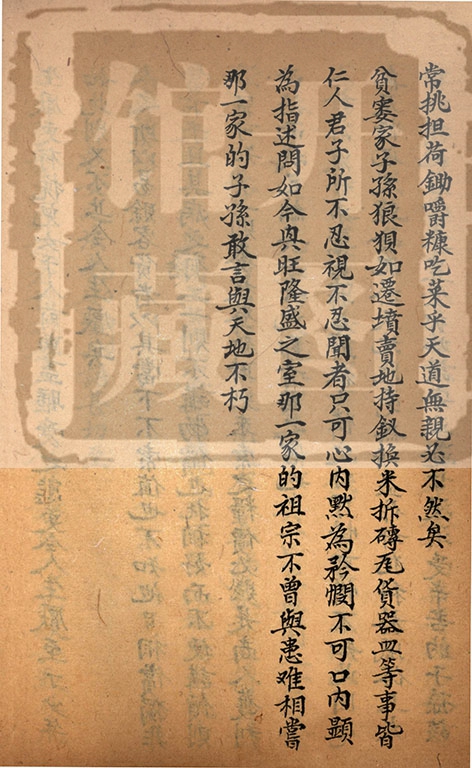 常挑担荷鋤嚼糠吃菜乎天道無親必不然矣
貧窶家子孫狼狽如遷墳賣地持釵換米拆磚瓦貨器皿等事皆
仁人君子所不忍視不忍聞者只可心內默為矜憫不可口內顯
為指述問如今興旺隆盛之室那一家的祖宗不曾與患难相嘗
那一家的子孫敢言與天地不朽